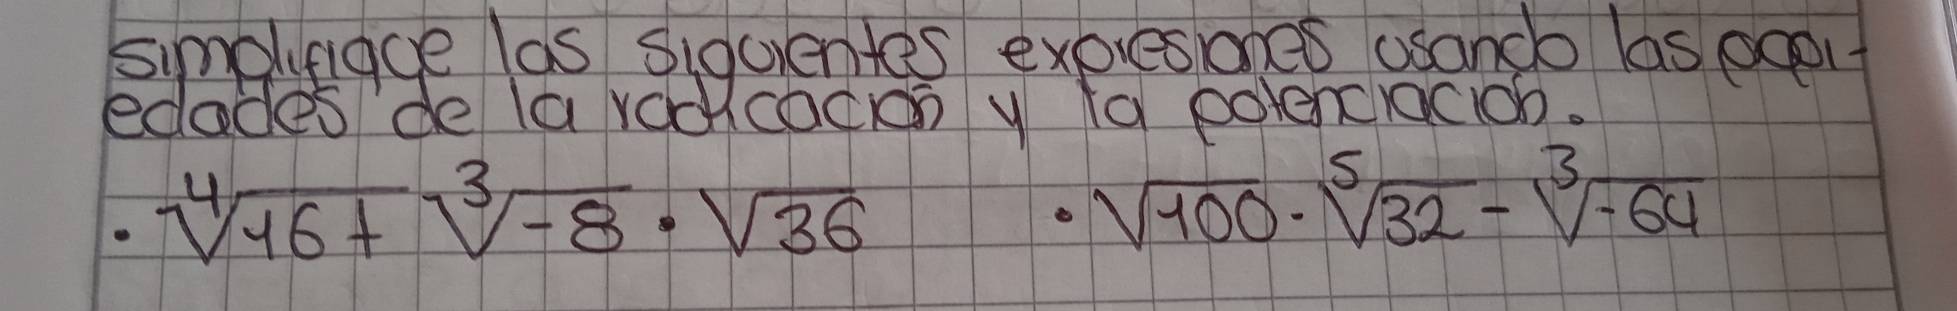 simplifique las siguientes expresiones usando las propi-
edades de la radicación y la potenciación.
· ∜16 + ∛-8 · √36 · √100 · ⁵√32 - ∛-64